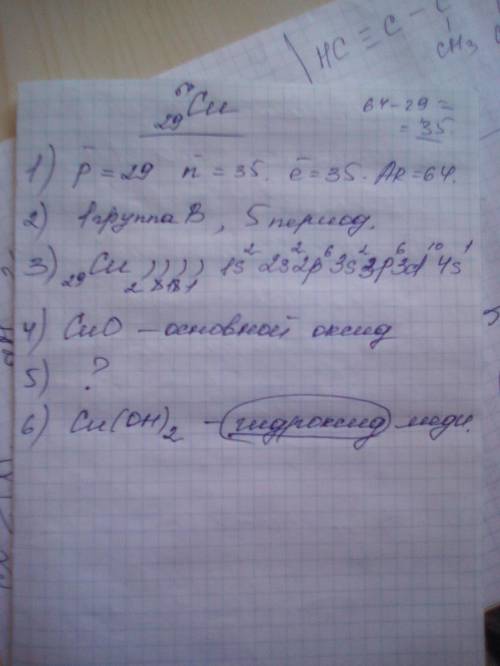 HC ≡ C - C
CH3
64
29 Cu
64-29 =
= 35
1) p̄ = 29 n̄ = 35. ē = 35. Ar = 64.
2) 1 группа B, 5 период.
3) 29 Cu ) ) ) ) 1s² 2s² 2p⁶ 3s² 3p⁶ 3d¹⁰ 4s¹
2 8 18 1
4) CuO – основной оксид
5) ?
6) Cu(OH)2 – гидроксид меди.